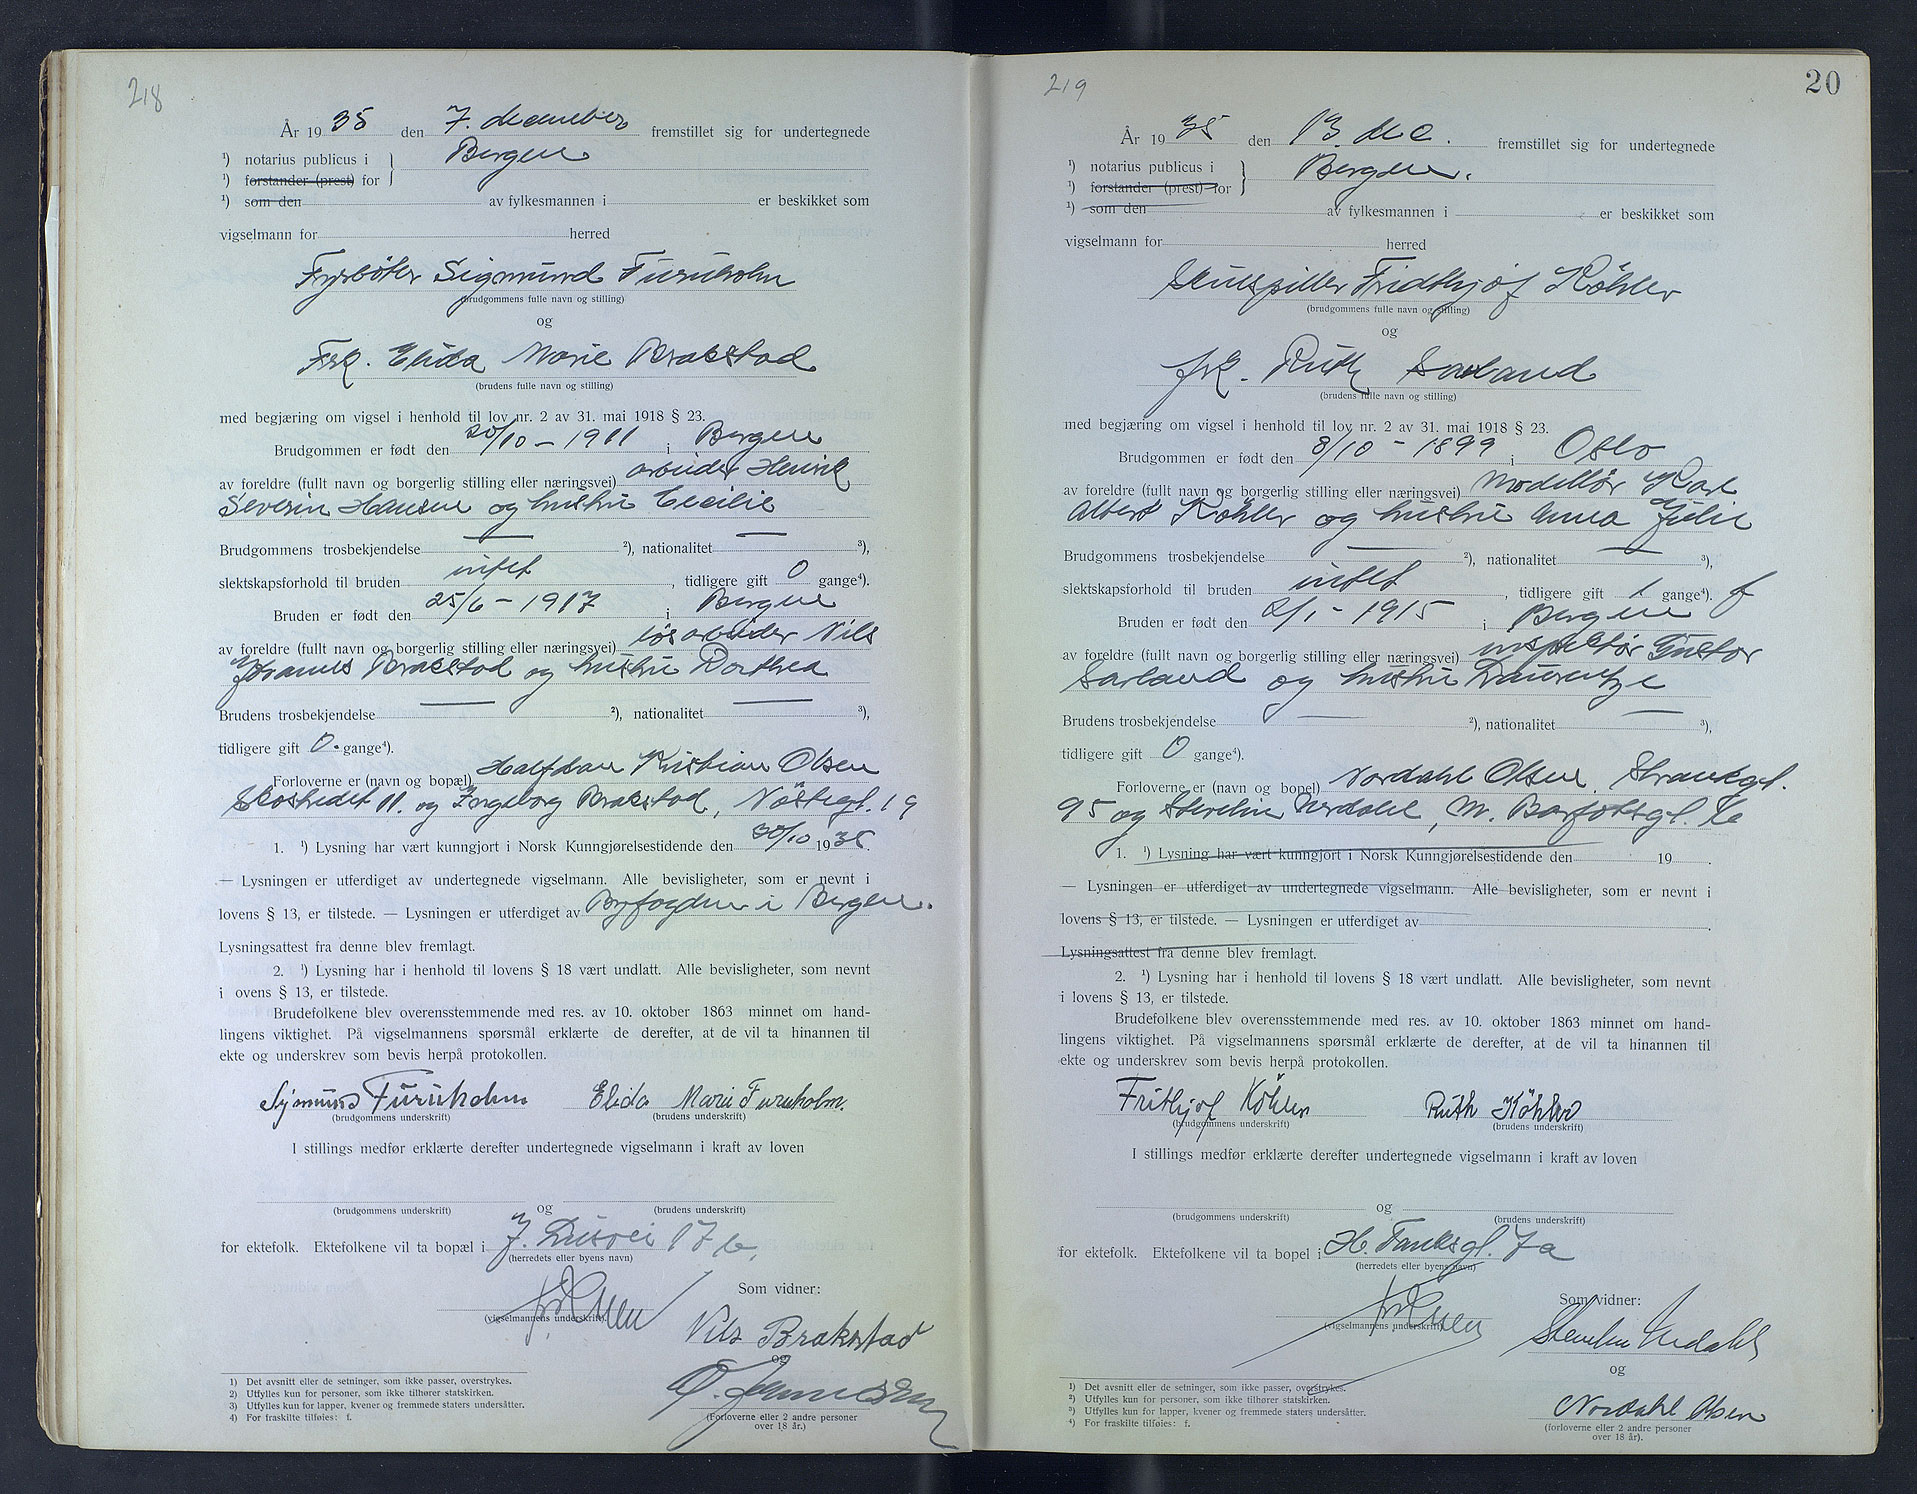 218
År 1935 den 7. december fremstillet sig for undertegnede
¹) notarius publicus i Bergen
¹) forstander (prest) for
¹) som den av fylkesmannen i er beskikket som
vigselmann for herred
Fyrbøter Sigmund Furuholm
(brudgommens fulle navn og stilling)
og
Frk. Elida Marie Brakstad
(brudens fulle navn og stilling)
med begjæring om vigsel i henhold til lov nr. 2 av 31. mai 1918 § 23.
Brudgommen er født den 20/10 - 1911 i Bergen
av foreldre (fullt navn og borgerlig stilling eller næringsvei) arbeider Henrik
Severin Hansen og hustru Cecilie
Brudgommens trosbekjendelse — ²), nationalitet — ³),
slektskapsforhold til bruden intet, tidligere gift 0 gange⁴).
Bruden er født den 25/6 - 1917 i Bergen
av foreldre (fullt navn og borgerlig stilling eller næringsvei) løsarbeider Nils
Johannes Brakstad og hustru Dorthea
Brudens trosbekjendelse — ²), nationalitet — ³),
tidligere gift 0. gange⁴).
Forloverne er (navn og bopæl) Halfdan Kristian Olsen
Skostredet 11. og Ingeborg Brakstad, Nøstegt. 19
1. ¹) Lysning har vært kunngjort i Norsk Kunngjørelsestidende den 30/10 1935.
— Lysningen er utferdiget av undertegnede vigselmann. Alle bevisligheter, som er nevnt i
lovens § 13, er tilstede. — Lysningen er utferdiget av Byfogden i Bergen.
Lysningsattest fra denne blev fremlagt.
2. ¹) Lysning har i henhold til lovens § 18 vært undlatt. Alle bevisligheter, som nevnt
i ovens § 13, er tilstede.
Brudefolkene blev overensstemmende med res. av 10. oktober 1863 minnet om hand-
lingens viktighet. På vigselmannens spørsmål erklærte de derefter, at de vil ta hinannen til
ekte og underskrev som bevis herpå protokollen.
Sigmund Furuholm Elida Marie Furuholm.
(brudgommens underskrift) (brudens underskrift)
I stillings medfør erklærte derefter undertegnede vigselmann i kraft av loven
og
(brudgommens underskrift) (brudens underskrift)
for ektefolk. Ektefolkene vil ta bopæl i J. Lusvei 17 b.
(herredets eller byens navn)
Som vidner:
(vigselmannens underskrift).
Nils Brakstad
og
(Forloverne eller 2 andre personer
over 18 år.)
1) Det avsnitt eller de setninger, som ikke passer, overstrykes.
2) Utfylles kun for personer, som ikke tilhører statskirken.
3) Utfylles kun for lapper, kvener og fremmede staters undersåtter.
4) For fraskilte tilføies: f.
219
20
År 1935 den 13. dec. fremstillet sig for undertegnede
¹) notarius publicus i Bergen.
¹) forstander (prest) for
¹) som den av fylkesmannen i er beskikket som
vigselmann for herred
Skuespiller Fridthjof Køhler
(brudgommens fulle navn og stilling)
og
frk. Ruth Sarland
(brudens fulle navn og stilling)
med begjæring om vigsel i henhold til lov nr. 2 av 31. mai 1918 § 23.
Brudgommen er født den 8/10 - 1899 i Oslo
av foreldre (fullt navn og borgerlig stilling eller næringsvei) modellør Karl
Albert Køhler og hustru Anna Julie
Brudgommens trosbekjendelse — ²), nationalitet — ³),
slektskapsforhold til bruden intet, tidligere gift 1 gange⁴). f
Bruden er født den 2/1 - 1915 i Bergen
av foreldre (fullt navn og borgerlig stilling eller næringsvei) inspektør Gustav
Sarland og hustru Laurentze
Brudens trosbekjendelse — ²), nationalitet — ³),
tidligere gift 0 gange⁴).
Forloverne er (navn og bopel) Nordahl Olsen, Strandgt.
95 og Nordahl, M. Barfotsgt. 16
1. ¹) Lysning har vært kunngjort i Norsk Kunngjørelsestidende den 19 .
— Lysningen er utferdiget av undertegnede vigselmann. Alle bevisligheter, som er nevnt i
lovens § 13, er tilstede. — Lysningen er utferdiget av
Lysningsattest fra denne blev fremlagt.
2. ¹) Lysning har i henhold til lovens § 18 vært undlatt. Alle bevisligheter, som nevnt
i lovens § 13, er tilstede.
Brudefolkene blev overensstemmende med res. av 10. oktober 1863 minnet om hand-
lingens viktighet. På vigselmannens spørsmål erklærte de derefter, at de vil ta hinannen til
ekte og underskrev som bevis herpå protokollen.
Frithjof Köhler Ruth Köhler
(brudgommens underskrift) (brudens underskrift)
I stillings medfør erklærte derefter undertegnede vigselmann i kraft av loven
og
(brudgommens underskrift) (brudens underskrift)
for ektefolk. Ektefolkene vil ta bopel i H. Tanksgt. 7a
(herredets eller byens navn)
Som vidner:
(vigselmannens underskrift)
og
Nordahl Olsen
(forloverne eller 2 andre personer
over 18 år).
¹) Det avsnitt eller de setninger, som ikke passer, overstrykes.
²) Utfylles kun for personer, som ikke tilhører statskirken.
³) Utfylles kun for lapper, kvener og fremmede staters undersåtter.
⁴) For fraskilte tilføies: f.